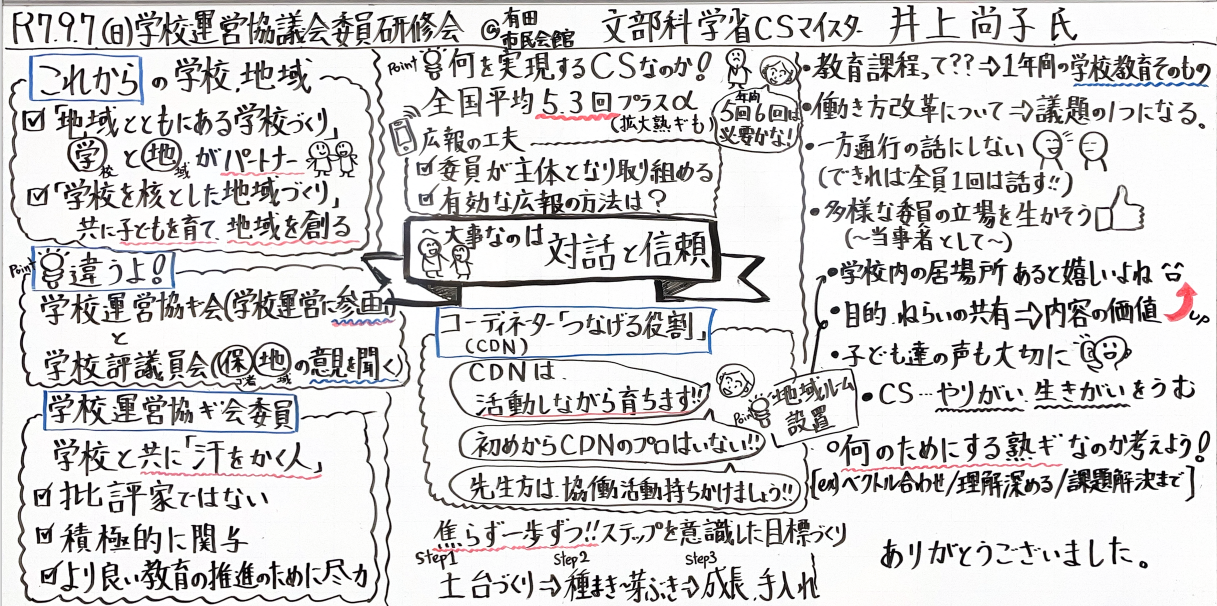 R7.9.7(日)学校運営協議会委員研修会 @有田市民会館 文部科学省CSマイスター 井上尚子氏
これからの学校、地域
☑「地域とともにある学校づくり」
学校と地域がパートナー
☑「学校を核とした地域づくり」
共に子どもを育て、地域を創る
Point 違うよ!
学校運営協ギ会(学校運営に参画)
と
学校評議員会(保護者 地域の意見を聞く)
学校運営協ギ会委員
学校と共に「汗をかく人」
☑批評家ではない
☑積極的に関与
☑より良い教育の推進のために尽力
Point 何を実現するCSなのか!
全国平均5.3回プラスα
(拡大熟ギも)
年間5回6回は必要かな!
広報の工夫
☑委員が主体となり取り組める
☑有効な広報の方法は?
~大事なのは 対話と信頼
コーディネーター「つなげる役割」
(CDN)
CDNは、
活動しながら育ちます!!
初めからCDNのプロはいない!!
先生方は、協働活動持ちかけましょう!!
Point 地域ルーム設置
焦らず一歩ずつ!!ステップを意識した目標づくり
Step1 Step2 Step3
土台づくり⇒種まき~芽ぶき⇒成長、手入れ
・教育課程って??⇒1年間の学校教育そのもの
・働き方改革について⇒議題の1つになる。
・一方通行の話にしない
(できれば全員1回は話す!!)
・多様な委員の立場を生かそう
(~当事者として~)
・学校内の居場所あると嬉しいよね
・目的、ねらいの共有⇒内容の価値 UP
・子ども達の声も大切に
・CS…やりがい、生きがいをうむ
○何のためにする熟ギなのか考えよう!
[ex)ベクトル合わせ/理解深める/課題解決まで]
ありがとうございました。